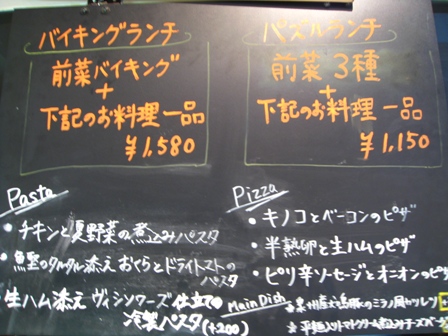 バイキングランチ
前菜バイキング
+
下記のお料理一品
¥1,580
パズルランチ
前菜3種
+
下記のお料理一品
¥1,150
Pasta
・チキンと夏野菜の煮込みパスタ
のタルタル添え おくらとドライトマトの
パスタ
・生ハム添え ヴィシソワーズ仕立ての
冷製パスタ(+200)
Pizza
・キノコとベーコンのピザ
・半熟卵と生ハムのピザ
・ピリ辛ソーセージとオニオンのピザ
Main Dish
のミラノ風カツレツ
トマトクリーム煮込みチーズ